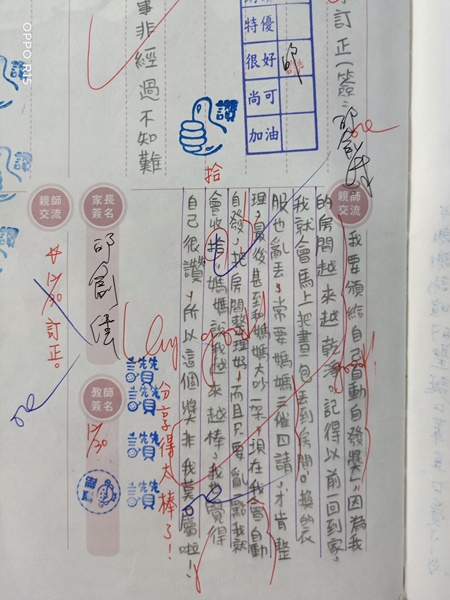 訂正(簽:
特優
很好
尚可
加油
讚
事非經過不知難
拾
親師交流
我要頒給自己「自動自發獎」,因為我
的房間越來越乾淨。記得以前一回到家,
我就會馬上把書包丟到房間。換的衣
服也亂丟,常要媽媽三催四請,才肯整
理,最後甚至和媽媽大吵一架,現在我會自動
自發,把房間整理好,而且只要亂一點我就
會收拾,媽媽說我越來越棒,我也覺得
自己很讚,所以這個獎非我莫屬啦!
Very good!
讚讚
讚讚
讚讚
讚讚
分享得太棒了!
家長簽名
教師簽名
11/30
親師交流
12/30訂正。
OPPO R15